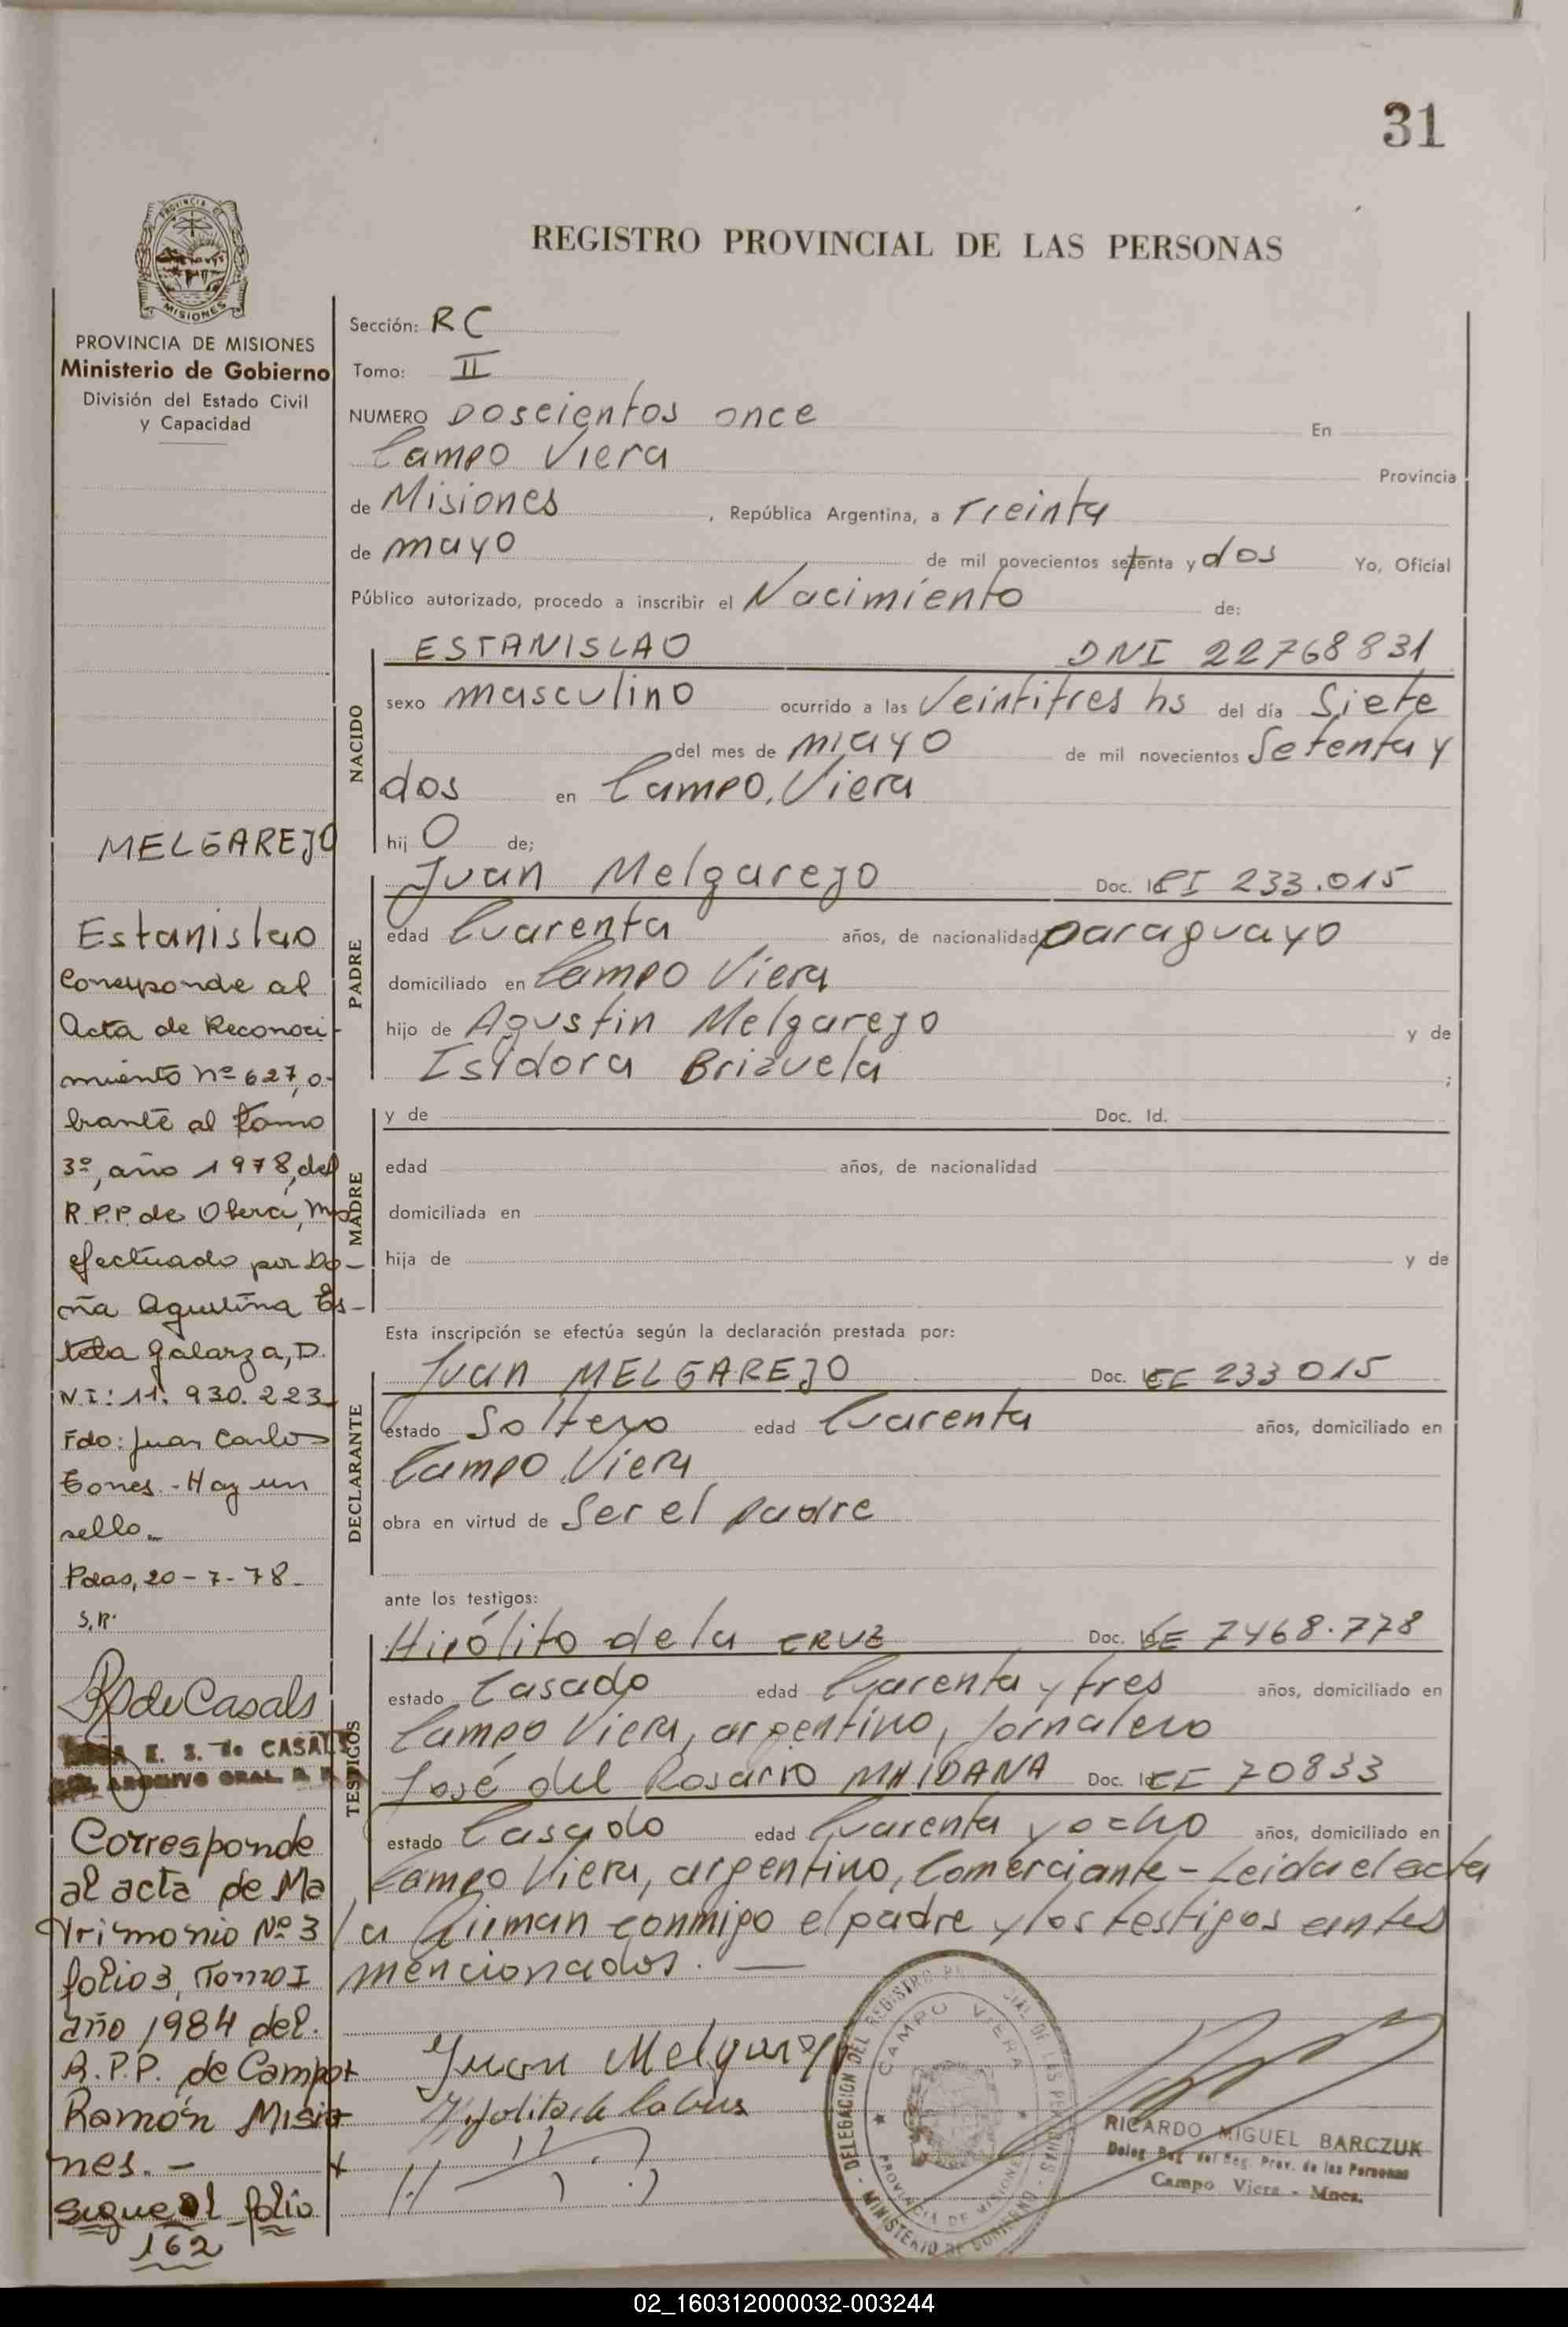 31
REGISTRO PROVINCIAL DE LAS PERSONAS
PROVINCIA DE
MISIONES
PROVINCIA DE MISIONES
Ministerio de Gobierno
División del Estado Civil
y Capacidad
Sección: RC
Tomo: II
NUMERO Doscientos once En
Campo Viera Provincia
de Misiones, República Argentina, a Treinta
de mayo de mil novecientos setenta y dos Yo, Oficial
Público autorizado, procedo a inscribir el Nacimiento de:
NACIDO
ESTANISLAO DNI 22768831
sexo masculino ocurrido a las Veintitres hs del día Siete
del mes de mayo de mil novecientos Setenta y
dos en Campo Viera
hij O de;
PADRE
Juan Melgarejo Doc. Id CI 233.015
edad Cuarenta años, de nacionalidad paraguayo
domiciliado en Campo Viera
hijo de Agustin Melgarejo y de
Isidora Brizuela ;
MADRE
y de Doc. Id.
edad años, de nacionalidad
domiciliada en
hija de y de
Esta inscripción se efectúa según la declaración prestada por:
DECLARANTE
Juan MELGAREJO Doc. 233015
estado Soltero edad Cuarenta años, domiciliado en
Campo Viera
obra en virtud de Ser el padre
ante los testigos:
TESTIGOS
Hipólito de la CRUZ Doc. 7468.778
estado Casado edad Cuarenta y tres años, domiciliado en
Campo Viera, argentino, jornalero
José del Rosario MAIDANA Doc. Id 70833
estado Casado edad Cuarenta y ocho años, domiciliado en
Campo Viera, argentino, Comerciante - Leida el acta
la firman conmigo el padre y los testigos antes
mencionados. —
Juan Melgarejo
Hipolito de la Crus
DELEGACION DEL REGISTRO PROVINCIAL DE LAS PERSONAS - MINISTERIO DE GOBIERNO -
CAMPO VIERA
PROVINCIA DE MISIONES
RICARDO MIGUEL BARCZUK
Deleg. Reg. del Reg. Prov. de las Personas
Campo Viera - Mnes.
MELGAREJO
Estanislao
Corresponde al
Acta de Reconoci-
miento Nº 627, o-
brante al tomo
3º, año 1978, del
R.P.P. de Oberá, Mns
efectuado por Do-
ña Agustina Es-
tela Galarza, D.
N I: 11. 930. 223
Fdo: Juan Carlos
Torres. - Hay un
sello.
Pdas, 20-7-78-
S.R.
R de Casals
E. S. de CASALS
ARCHIVO GRAL. R. P.
Corresponde
al acta de Ma
trimonio Nº 3
folio 3, Tomo I
año 1984 del.
R.P.P. de Campo
Ramón Misio
nes. -
sigue al folio
162
02_160312000032-003244